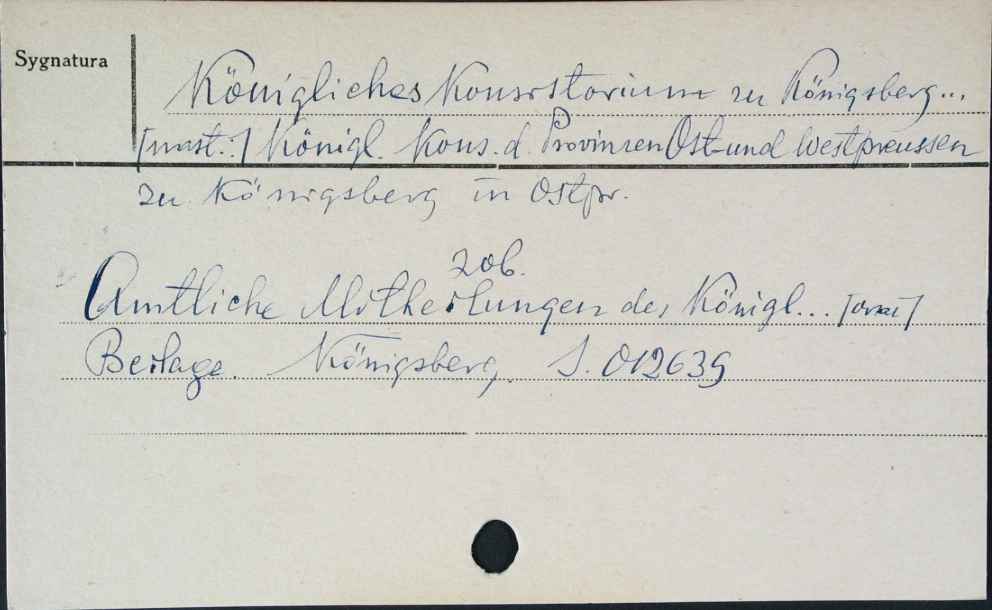 Sygnatura
Königliches Konsistorium zu Königsberg...
[nast.:] Königl. Kons. d. Provinzen Ost- und Westpreussen
zu Königsberg in Ostpr.
zob.
Amtliche Mitheilungen des Königl... [oraz]
Beilage. Königsberg. S. 012639